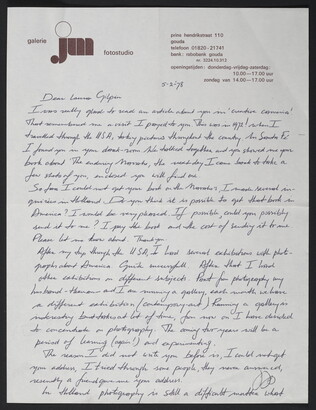 galerie
jm
fotostudio
prins hendrikstraat 110
gouda
telefoon 01820 - 21741
bank: rabobank gouda
openingstijden: donderdag-vrijdag-zaterdag:
10.00—17.00 uur
zondag van 14.00—17.00 uur
5-2-78
Dear Laura Gilpin
I was really glad to read an article about you in 'camera'
That remembered me a visit I payed to you. This was in 1972! when I
travelled through the USA, taking pictures throughout the country. In Santa Fé
I found you in your dark-room. We talked together and you showed me your
book about The enduring Navaho, the next day I came back to take a
few shots of you, enclosed you will find one.
So far I could not get your book on the Navaho's, I made several in-
quiries in Holland. Do you think it is possible to get that book in
America? I would be very pleased. If possible, could you possibly
send it to me? I pay the book and the cost of sending it to me.
Please let me know about. Thank you.
After my trip through the USA, I had several exhibitions with phot-
ographs about America quite succesfull. After that I had
other exhibitions on different subject. Apart from photography my
husband - Herman - and I are running a gallery, each month we have
a different exhibition (contemporary art). Running a gallery is
interesting but takes a lot of time, for now on I have decided
to concentrate on photography. The coming two years will be a
period of learning (again!) and experimenting.
The reason I did not write you before is, I could not get
you address, I tried through some people, they never answered,
recently a friend gave me your address.
In Holland photography is still a difficult matter, what